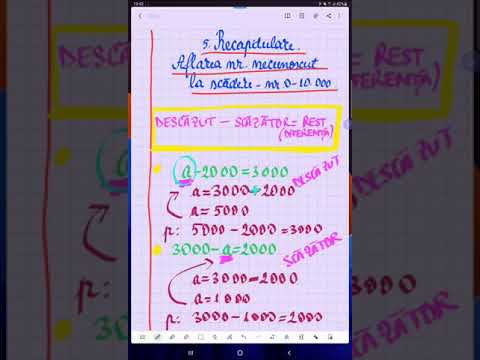 5. Recapitulare.
Aflarea nr. necunoscut
la scădere - nr. 0-10.000
DESCĂZUT - SCĂZĂTOR = REST
(DIFERENȚA)
a - 2000 = 3000
DESCĂZUT
a = 3000 + 2000
a = 5000
p: 5000 - 2000 = 3000
3000 - a = 2000
SCĂZĂTOR
a = 3000 - 2000
a = 1000
p: 3000 - 1000 = 2000